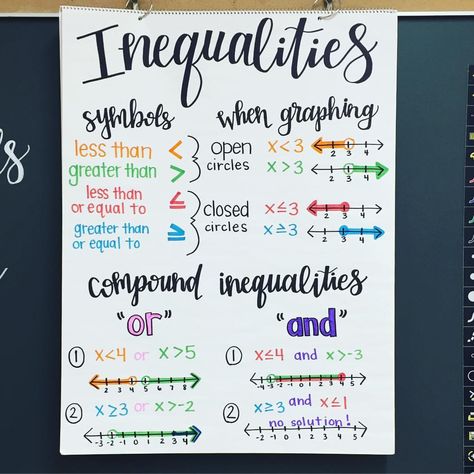 Inequalities
symbols
less than <
greater than >
open circles
less than or equal to ≤
greater than or equal to ≥
closed circles
when graphing
x < 3
2 3 4
x > 3
2 3 4
x ≤ 3
2 3 4
x ≥ 3
2 3 4
compound inequalities
"or"
① x<4 or x>5
2 3 4 5 6 7 8
② x≥3 or x>-2
-3 -2 -1 0 1 2 3 4
"and"
① x≤4 and x>-3
-4 -3 -2 -1 0 1 2 3 4 5
② x≥3 and x≤1
no solution!
-2 -1 0 1 2 3 4 5